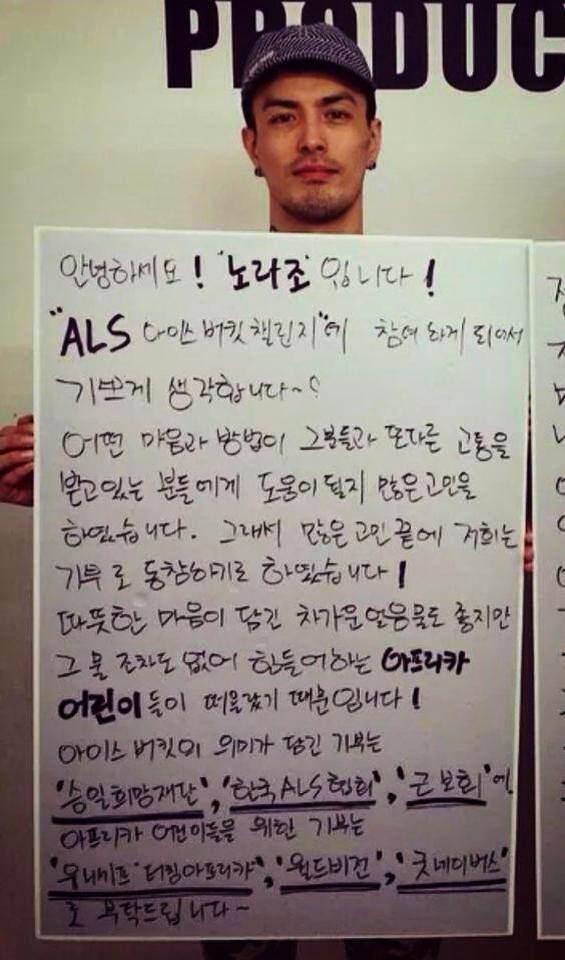 PRODUC
안녕하세요! '노라조'입니다!
"ALS 아이스버킷챌린지"에 참여하게 되어서
기쁘게 생각합니다~♡
어떤 마음과 방법이 그분들과 또다른 고통을
받고있는 분들에게 도움이 될지 많은고민을
하였습니다. 그래서 많은고민 끝에 저희는
기부로 동참하기로 하였습니다!
따뜻한 마음이 담긴 차가운얼음물도 좋지만
그 물조차도 없어 힘들어하는 아프리카
어린이들이 떠올랐기 때문입니다!
아이스버킷의 의미가 담긴 기부는
'승일희망재단', '한국ALS협회', '근보회'에
아프리카 어린이들을 위한 기부는
'유니세프 더힘아프리카', '월드비전', '굿네이버스'
로 부탁드립니다~